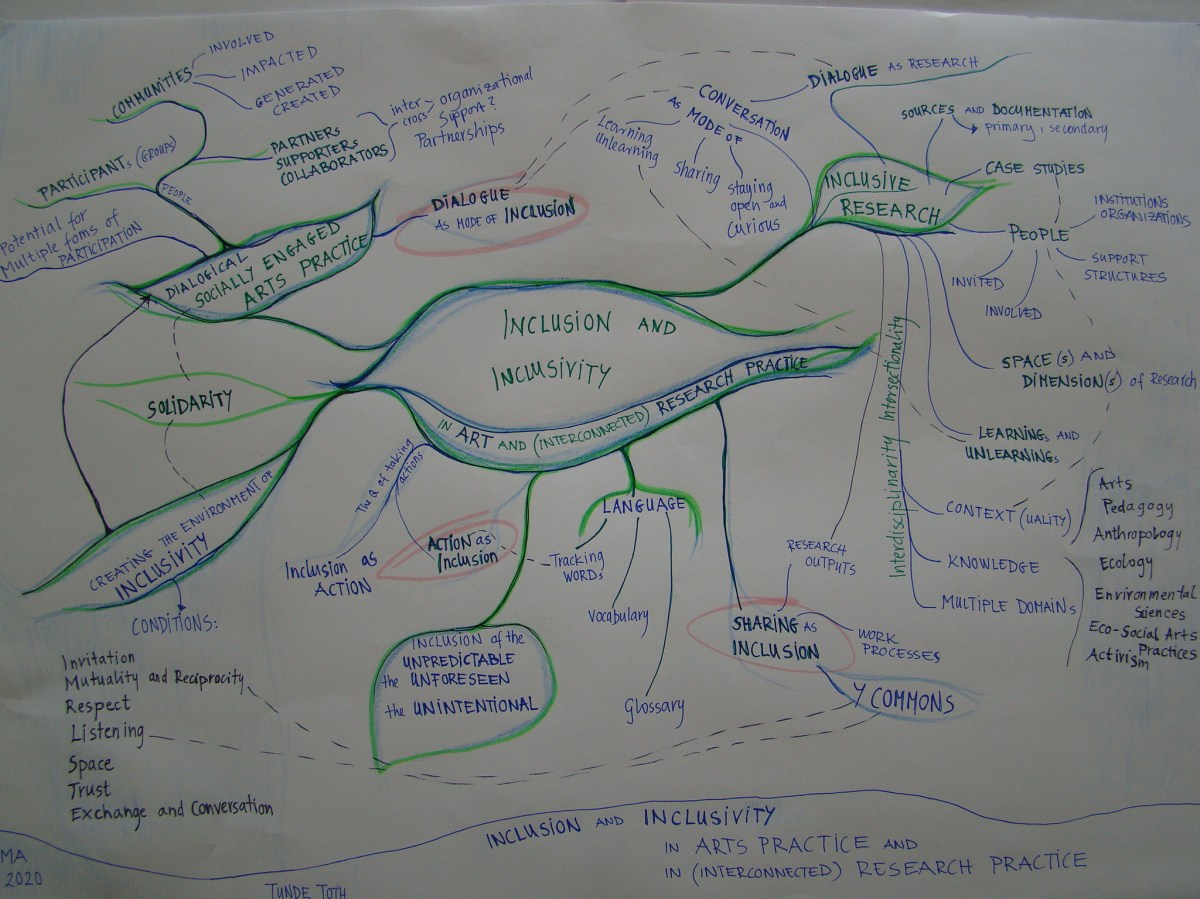 COMMUNITIES
INVOLVED
IMPACTED
GENERATED
CREATED
PARTICIPANTS (GROUPS)
PEOPLE
PARTNERS
SUPPORTERS
COLLABORATORS
inter
cross
organizational
Support?
Partnerships
Potential for
Multiple foms of
PARTICIPATION
DIALOGICAL
SOCIALLY ENGAGED
ARTS PRACTICE
DIALOGUE
AS MODE OF INCLUSION
CONVERSATION
AS MODE OF
Learning
Unlearning
Sharing
staying
open and
Curious
DIALOGUE AS RESEARCH
SOURCES AND DOCUMENTATION
primary ; secondary
INCLUSIVE
RESEARCH
CASE STUDIES
PEOPLE
INSTITUTIONS
ORGANIZATIONS
SUPPORT
STRUCTURES
INVITED
INVOLVED
SPACE(S) AND
DIMENSION(S) of Research
LEARNINGS AND
UNLEARNINGS
Interdisciplinarity Intersectionality
CONTEXT (UALITY)
KNOWLEDGE
MULTIPLE DOMAINS
Arts
Pedagogy
Anthropology
Ecology
Environmental
Sciences
Eco-Social Arts
Practices
Activism
INCLUSION AND
INCLUSIVITY
IN ART AND (INTERCONNECTED) RESEARCH PRACTICE
SOLIDARITY
CREATING THE ENVIRONMENT OF
INCLUSIVITY
CONDITIONS:
Invitation
Mutuality and Reciprocity
Respect
Listening
Space
Trust
Exchange and Conversation
The Q of taking
actions
Inclusion as
ACTION
ACTION as
Inclusion
LANGUAGE
Tracking
WORDS
Vocabulary
Glossary
INCLUSION of the
UNPREDICTABLE
the UNFORESEEN
the UNINTENTIONAL
RESEARCH
OUTPUTS
SHARING AS
INCLUSION
WORK
PROCESSES
Y COMMONS
INCLUSION AND INCLUSIVITY
IN ARTS PRACTICE AND
IN (INTERCONNECTED) RESEARCH PRACTICE
MA
2020
TUNDE TOTH